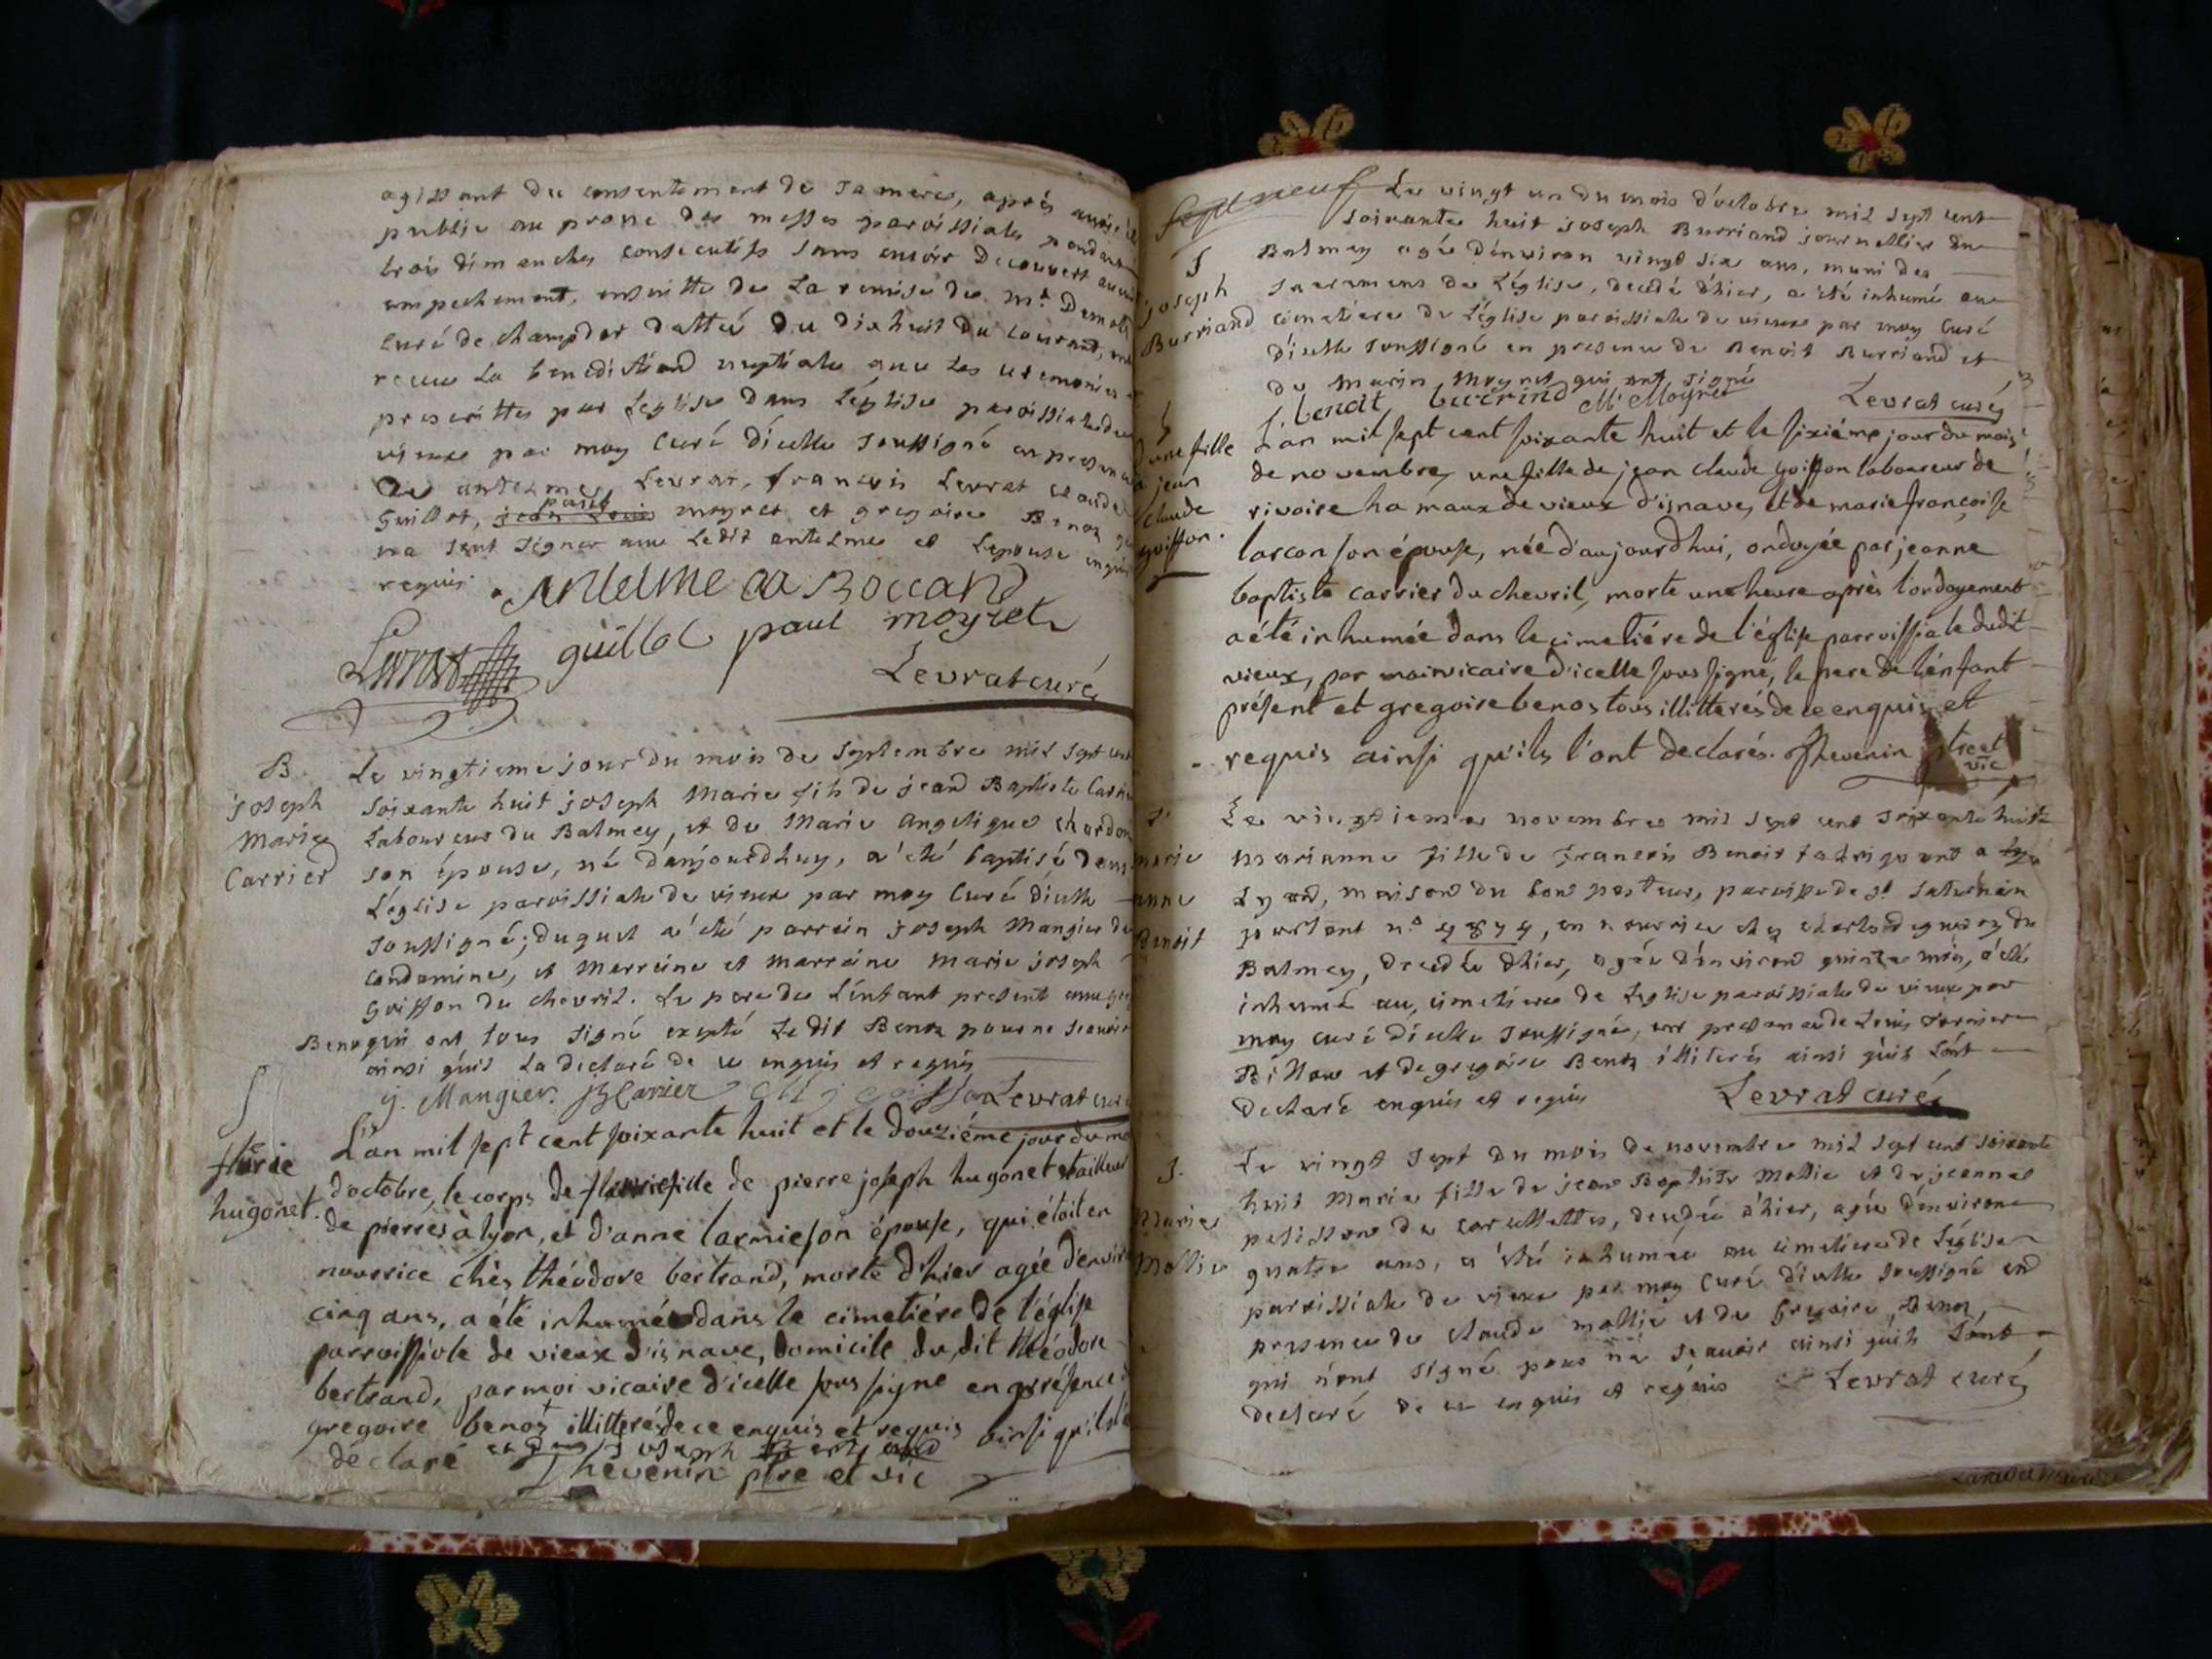 agissant du consentement de sa mere, après avoir été
publié au prone des messes paroissiales pendant
trois dimanches consecutifs sans avoir decouvert aucun
empechement, ensuitte de la remise de Mr.
curé de champdor datteé du dixhuit du courant, ont
receu la benediction nuptiale avec les ceremonies
prescrittes par L'église dans L'église paroissiale de
vieux par moy Curé d'icelle soussigné en presence
de antelme Levrat, francois Levrat claude
Guillot, jean Louis paul moyret et gregoire Benoz qui
na sçut signer avec Ledit antelme et L'epouse enquis
requis.
Antelme Boccand
Levrat guillot paul moyret
Levrat curé
B.
joseph
Marie
Carrier
Le vingtieme jour du mois de septembre mil sept cent
soixante huit joseph Marie fils de jean Baptiste Carrier
Laboureur du Balmey, et de Marie angelique chardon
son épouse, né d'aujourdhuy, a été baptisé dans
L'église paroissiale de vieux par moy Curé d'icelle
soussigné; duquel a été parrein joseph Mangier de
condamine, et Marreine et marreine marie joseph
Goiffon du chevril. Le pere de L'enfant present avec
Benoz qui ont tous signé exepté Ledit Benoz pour ne scavoir
ainsi qu'il La declaré de ce enquis et requis
j. Mangier. JB Carrier Levrat curé
S
flurie
hugonet.
L'an mil sept cent soixante huit et le douziéme jour du mois
d'octobre, le corps de flurie fille de pierre joseph hugonet tailleur
de pierres à lyon, et d'anne larmie son épouse, qui étoit en
nourrice chès théodore bertrand, morte d'hier agée d'environ
cinq ans, a été inhumée dans le cimetiére de l'église
parroissiale de vieux d'isnave, domicile du dit théodore
bertrand, par moi vicaire d'icelle sous signé en présence
gregoire benos illitterés de ce enquis et requis ainsi qu'ils
déclaré et de joseph
Thevenin ptre et vic
sept neuf
S
joseph
Burriand
Le vingt un du mois d'octobre mil sept cent
soixante huit joseph Burriand journallier du
Balmey agé d'environ vingt six ans, muni des
sacremens de L'église, decedé d'hier, a été inhumé au
cimetiere de L'église paroissiale de vieux par moy Curé
d'icelle soussigné en presence de Benoit Burriand et
de Marin Moyret qui ont signé
benoit M. Moyret Levrat curé
S
une fille
a jean
claude
goiffon.
L'an mil sept cent soixante huit et le sixiéme jour du mois
de novembre, une fille de jean claude goiffon laboureur de
rivoire hamaux de vieux d'isnave, et de marie françoise
larcon son épouse, née d'aujourdhui, ondoyée par jeanne
baptiste carrier du chevril, morte une heure après l'ondoyement
a été inhumée dans le cimetiére de l'église parroissiale dudit
vieux, par moi vicaire d'icelle sous signé, le pere de l'énfant
présent et gregoire benos tous illitterés de ce enquis et
requis ainsi qu'ils l'ont declarés. Thevenin ptre et
vic
S
marie
anne
Benoit
Le vingtieme novembre mil sept cent soixante huit
Marianne fille de francois Benoit fabriquant a
Lyon, maison du bon pasteur, paroisse de st. saturnin
portant n.o 4874, en nourrice chez charles du
Balmey, decedée d'hier, agée d'environ quinze mois, a été
inhumé au cimetiere de L'eglise paroissiale de vieux par
moy curé d'icelle soussigné, en presence de Louis
Billon et de gregoire Benoz illiterés ainsi qu'ils L'ont
declaré enquis et requis Levrat curé
S.
Marie
Mollie
Le vingt sept du mois de novembre mil sept cent soixante
huit Marie fille de jean Baptiste Mollie et de jeanne
petisson de corcellettes, decedée d'hier, agée d'environ
quatre ans, a été inhumée au cimetiere de L'église
paroissiale de vieux par moy Curé d'icelle soussigné en
presence de claude mollie et de Gregoire Benoz,
qui n'ont signé pour ne scavoir ainsi qu'ils L'ont
declaré de ce enquis et requis Levrat curé